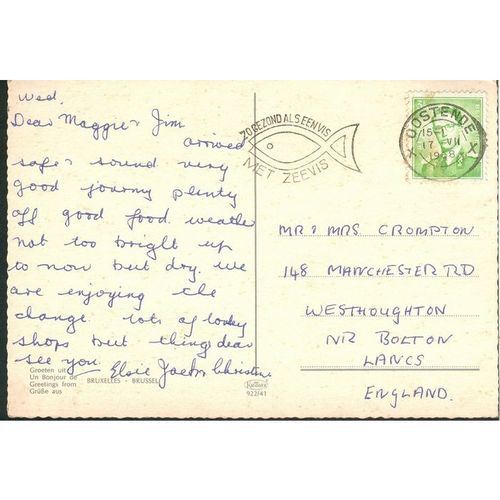 Wed.
Dear Maggie & Jim
arrived
safe & sound very
good journy plenty
off good food. weather
not too bright up
to now but dry. we
are enjoying the
change lots of lovley
shops but things dear
see you.
Elsie Jacob Christine
Groeten uit
Un Bonjour de
Greetings from
Grüße aus
BRUXELLES - BRUSSEL
922/41
ZO GEZOND ALS EEN VIS
MET ZEEVIS
X OOSTENDE X
15-
17 VII
1968
MR & MRS CROMPTON
148 MANCHESTER RD
WESTHOUGHTON
NR BOLTON
LANCS
ENGLAND.